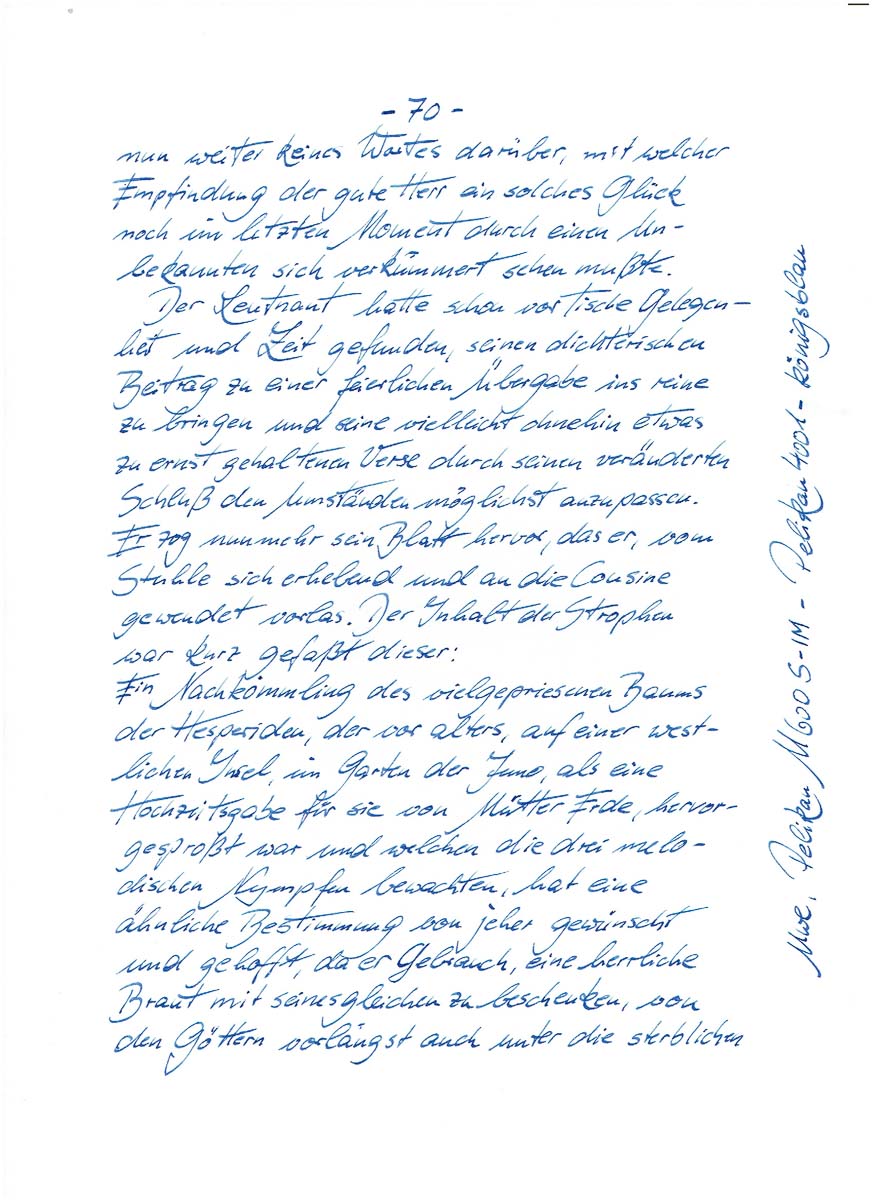 - 70 -
nun weiter keines Wortes darüber, mit welcher
Empfindung der gute Herr ein solches Glück
noch im letzten Moment durch einen Un-
bekannten sich verkümmert sehen mußte.
Der Leutnant hatte schon vor Tische Gelegen-
heit und Zeit gefunden, seinen dichterischen
Beitrag zu einer feierlichen Übergabe ins reine
zu bringen und seine vielleicht ohnehin etwas
zu ernst gehaltenen Verse durch seinen veränderten
Schluß den Umständen möglichst anzupassen.
Er zog nunmehr sein Blatt hervor, das er, vom
Stuhle sich erhebend und an die Cousine
gewendet vorlas. Der Inhalt der Strophen
war kurz gefaßt dieser:
Ein Nachkömmling des vielgepriesenen Baums
der Hesperiden, der vor alters, auf einer west-
lichen Insel, im Garten der Juno, als eine
Hochzeitsgabe für sie von Mutter Erde, hervor-
gesproßt war und welchen die drei melo-
dischen Nympfen bewachten, hat eine
ähnliche Bestimmung von jeher gewünscht
und gehofft, da er Gebrauch, eine herrliche
Braut mit seinesgleichen zu beschenken, von
den Göttern vorlängst auch unter die sterblichen
Uwe, Pelikan M600 S-IM - Pelikan 4001 - königsblau